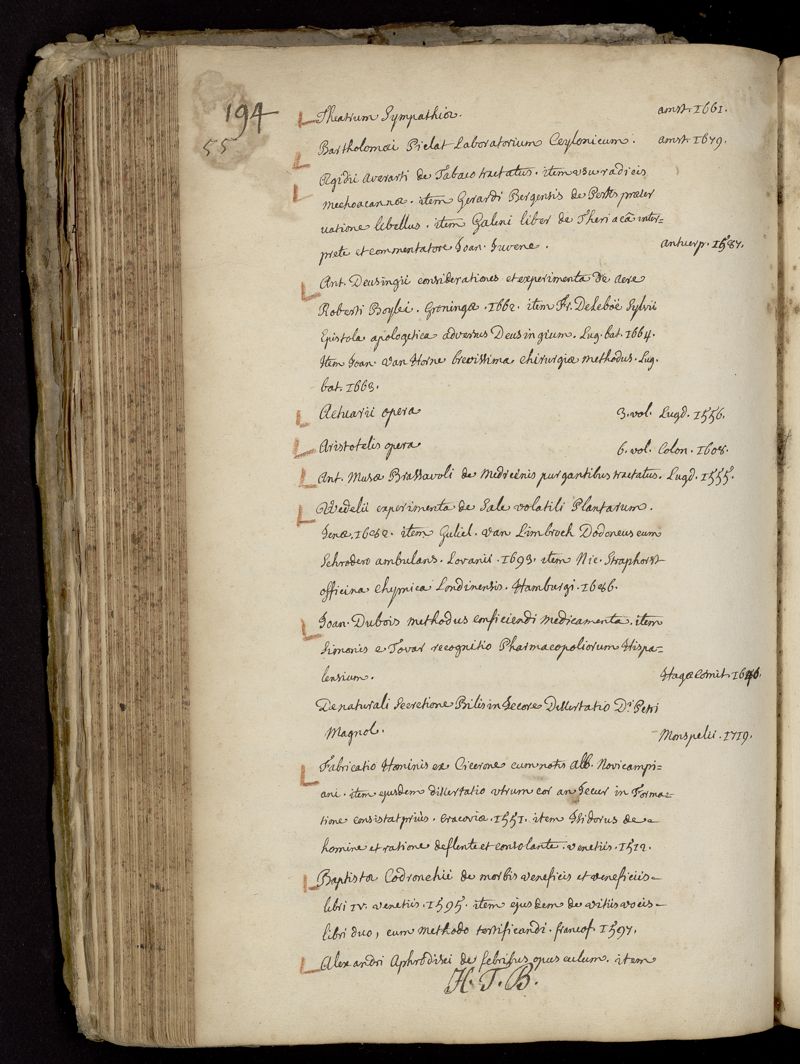 194
55
Theatrum Sympathiæ. amst. 1661.
Bartholomæi Pielat Laboratorium Ceylonicum. amst. 1679.
Ægidii Averarti de Tabaco tractatus. item usu radicis
Mechoacannæ. item Gerardi Bergensis de Pestis præser
vatione libellus. item Galeni liber de Theriacâ inter=
prete et commentatore Joan. Juvene. antuerp. 1587.
Ant. Deusingii considerationes et experimenta de Aere
Roberti Boylei. Groningæ. 1662. item Fr. DeLeboë Sylvii
Epistola apologetica adversus Deusingium. Lug. bat. 1664.
Item Joan. Van Horne brevissima chirurgiæ methodus. Lug.
bat. 1663.
Actuarii opera 3. vol. Lugd. 1556.
Aristotelis opera 6. vol. Colon. 1608.
Ant. Musæ Brassavoli de Medicinis purgantibus tractatus. Lugd. 1555.
Wedelii experimenta de Sale volatili Plantarum.
Jenæ. 1682. item Guliel. van Limbroch Dodoneus cum
Schrodero ambulans. Lovanii. 1693. item Nic. Straphorst
officina chymica Londinensis. Hamburgi. 1686.
Joan. Dubois methodus conficiendi medicamenta. item
Simonis a Tovar recognitio Pharmacopoliorum Hispa=
lensium. Hagæ Comit. 1640.
De naturali Secretione Bilis in Jecore Dissertatio D. Petri
Magnol. Monspelii. 1719.
Fabricatio Hominis ex Cicerone cum notis Alb. Novicampi=
ani. item ejusdem dissertatio utrum cor an Jecur in Forma=
tione consistat priùs. Cracoviæ. 1551. item Isidorus de
homine et ratione deflente et consolante. venetiis. 1512.
Baptistæ Codronchii de morbis veneficis et veneficiis
libri IV. venetiis. 1595. item ejusdem de vitiis vocis
libri duo, cum methodo testificandi. francof. 1597.
Alexandri Aphrodisei de febribus opusculum. item
H. T. B.